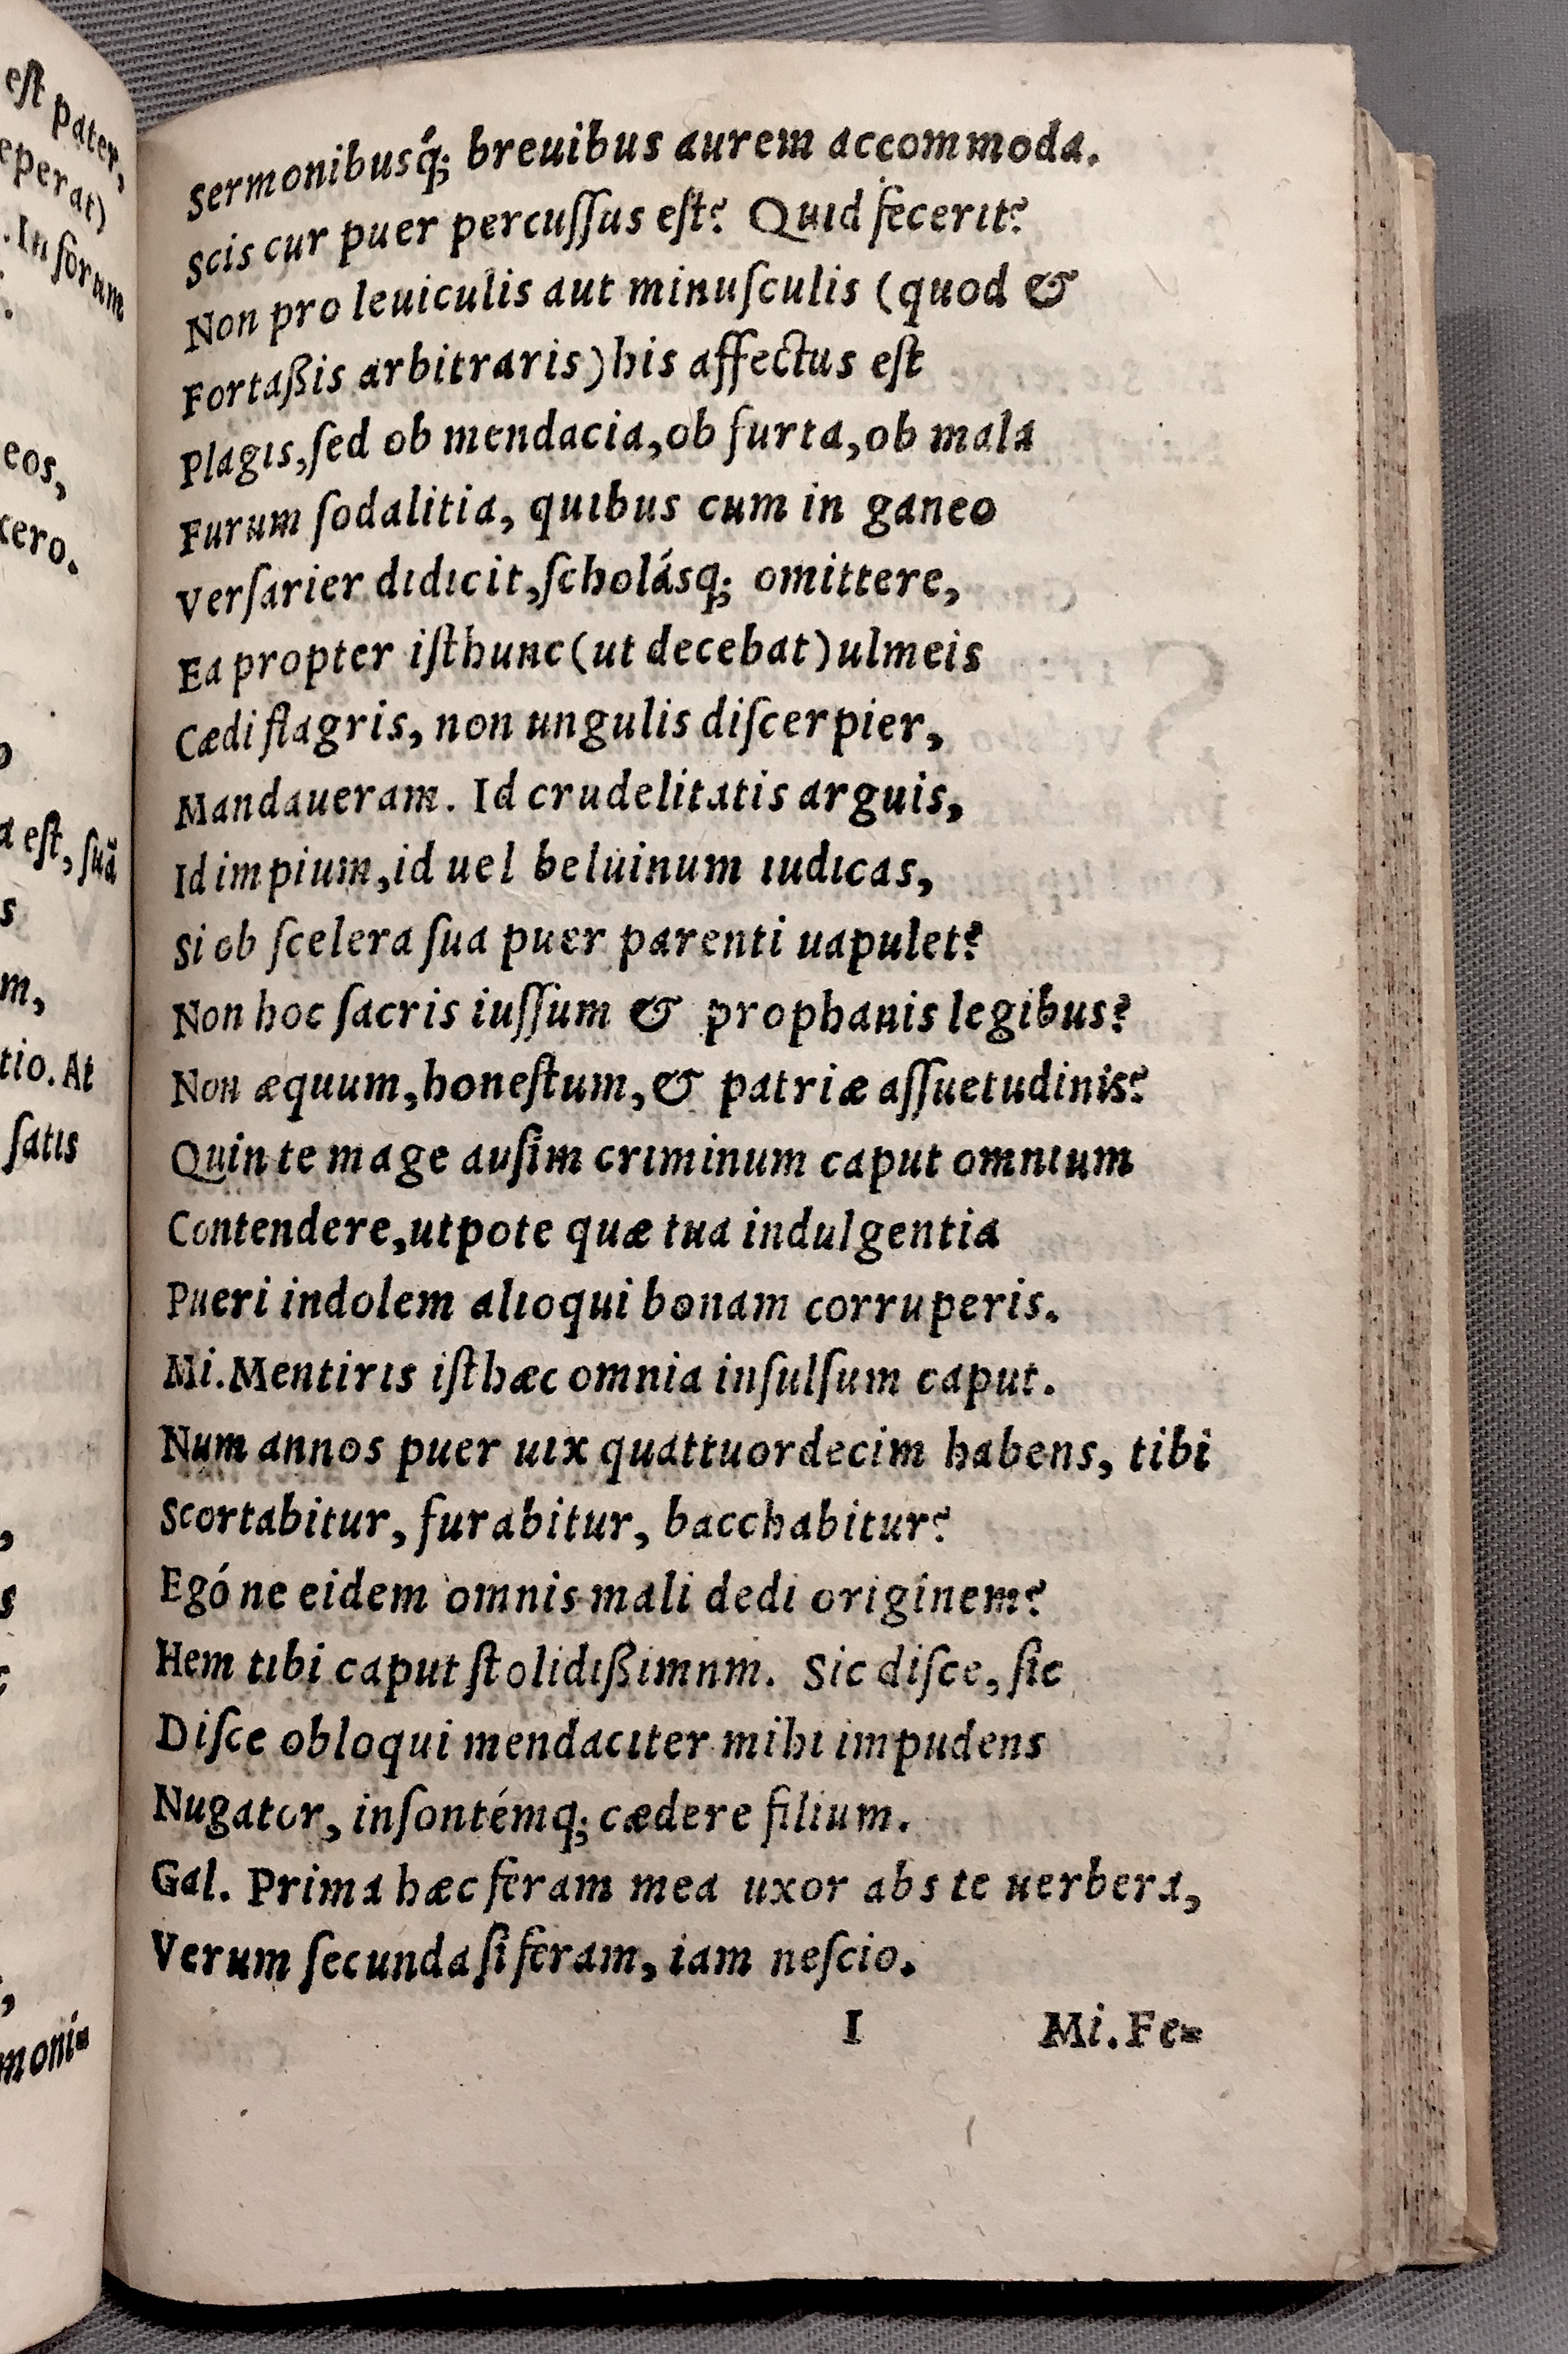 est pater,
eperat)
. In forum
eos,
cero.
a est, suā
s
m,
tio. At
satis
moni=
Sermonibusq́; breuibus aurem accommoda.
Scis cur puer percussus est? Quid fecerit?
Non pro leuiculis aut minusculis (quod &
Fortaßis arbitraris) his affectus est
Plagis, sed ob mendacia, ob furta, ob mala
Furum sodalitia, quibus cum in ganeo
Versarier didicit, scholásq; omittere,
Ea propter isthunc (ut decebat) ulmeis
Cædi flagris, non ungulis discerpier,
Mandaueram. Id crudelitatis arguis,
Id impium, id uel beluinum iudicas,
Si ob scelera sua puer parenti uapulet?
Non hoc sacris iussum & prophanis legibus?
Non æquum, honestum, & patriæ assuetudinis?
Quin te mage ausim criminum caput omnium
Contendere, utpote quæ tua indulgentia
Pueri indolem alioqui bonam corruperis.
Mi. Mentiris isthæc omnia insulsum caput.
Num annos puer uix quattuordecim habens, tibi
Scortabitur, furabitur, bacchabitur?
Egóne eidem omnis mali dedi originem?
Hem tibi caput stolidißimnm. Sic disce, sic
Disce obloqui mendaciter mihi impudens
Nugator, insontémq; cædere filium.
Gal. Prima hæc feram mea uxor abs te uerbera,
Verum secunda si feram, iam nescio.
I Mi. Fe=